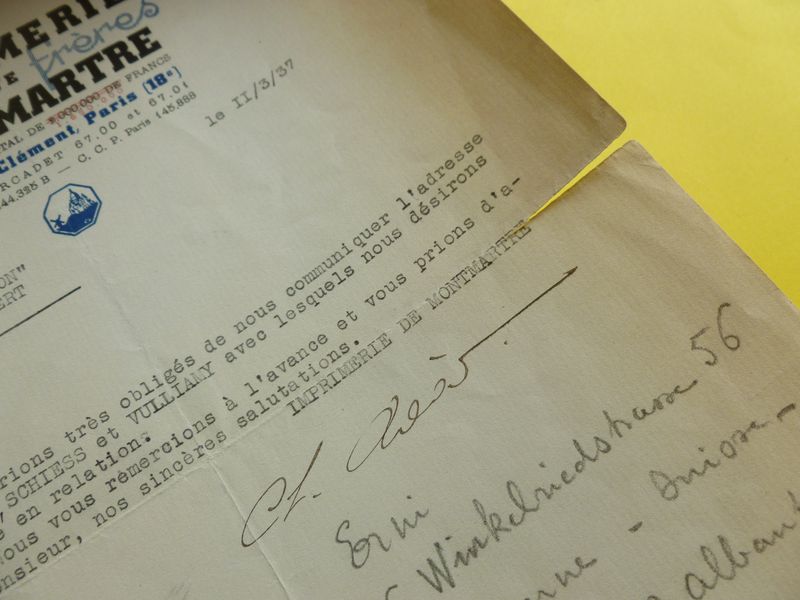 MERIE
Frères
MARTRE
TAL DE 2.000.000 DE FRANCS
Clément, Paris (18e)
RCADET 67.00 et 67.01
44.325 B — C. C. P. Paris 145.888
le II/3/37
ON"
ERT
rions très obligés de nous communiquer l'adresse
SCHIESS et VULLIAMY avec lesquels nous désirons
e en relation.
Nous vous rémercions à l'avance et vous prions d'a-
onsieur, nos sincères salutations.
IMPRIMERIE DE MONTMARTRE
Erni
Winkelriedstrasse 56